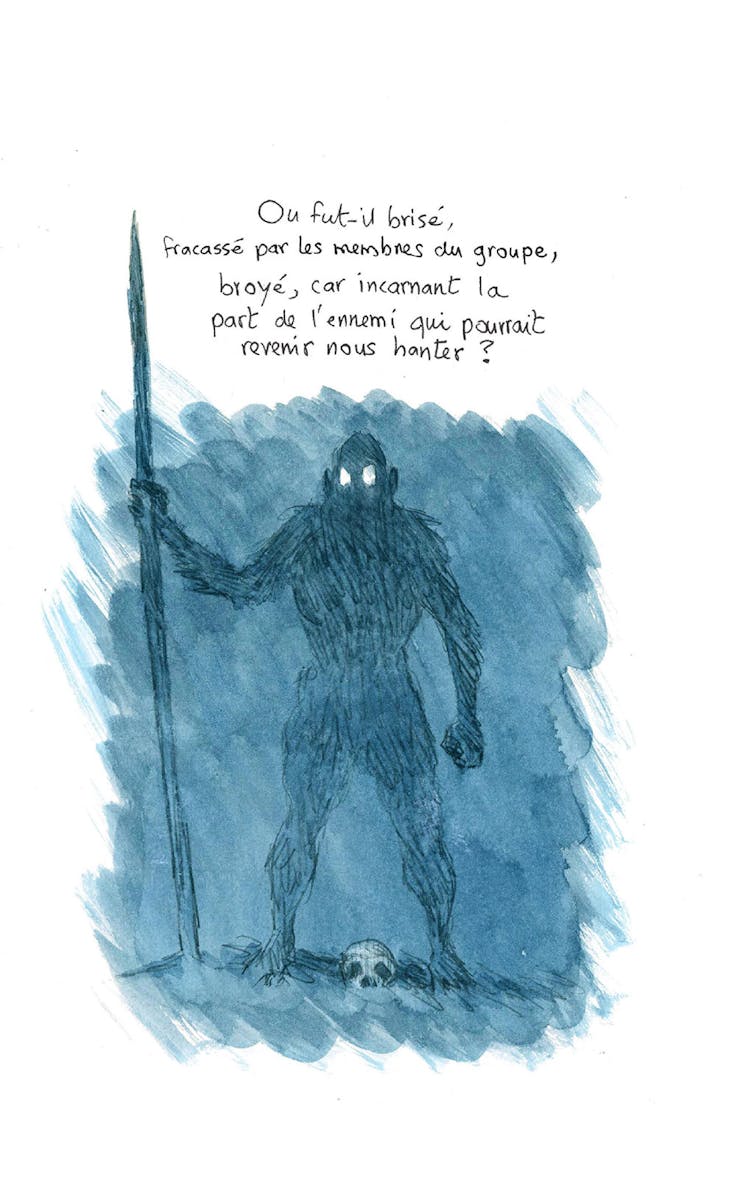 Ou fut-il brisé,
fracassé par les membres du groupe,
broyé, car incarnant la
part de l'ennemi qui pourrait
revenir nous hanter ?